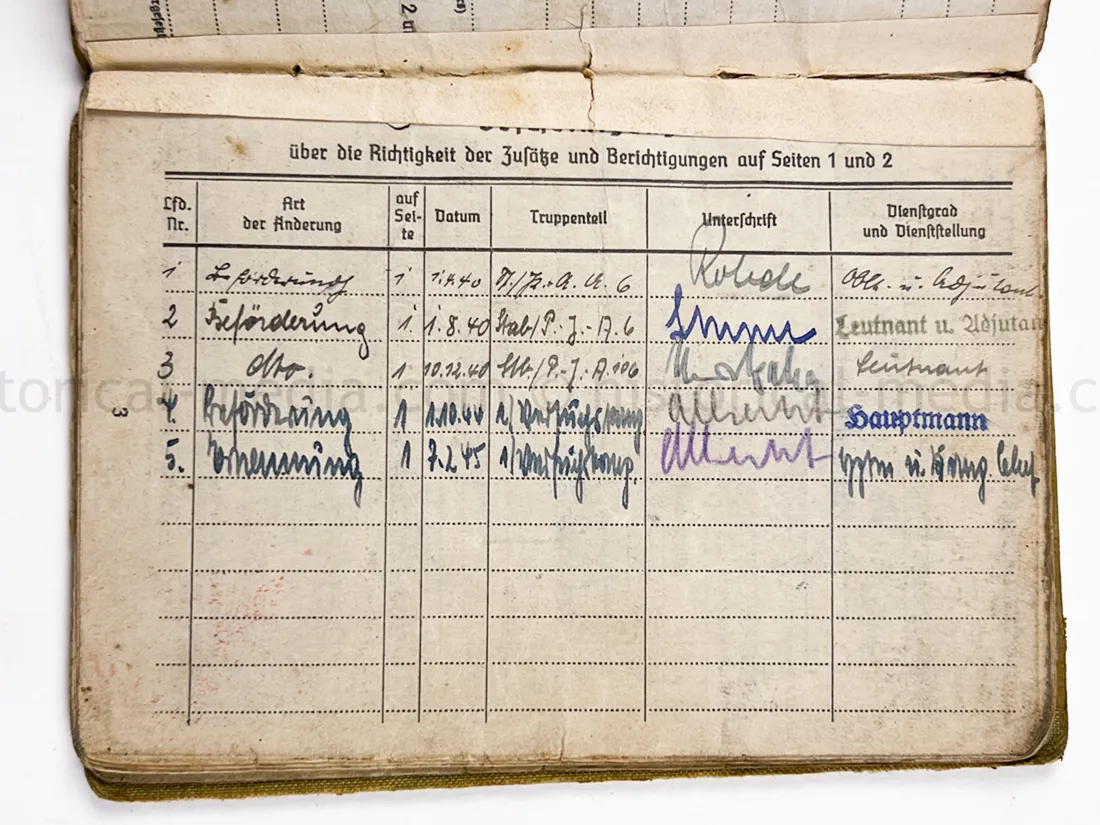 über die Richtigkeit der Zusätze und Berichtigungen auf Seiten 1 und 2
Lfd. Nr. Art der Änderung auf Sei- te Datum Truppenteil Unterschrift Dienstgrad und Dienststellung
1 Beförderung 1 1.4.40 6 Rohde Oblt. u. Adjutant
2 Beförderung 1 1.8.40 Stab/P.-J.-A. 6 Leutnant u. Adjutan
3 dto. 1 10.12.40 Stb./P.-J.-A. Leutnant
4. Beförderung 1 1.10.44 Hauptmann
5. Ernennung 1 7.2.45 Hptm u. Komp. Chef
3